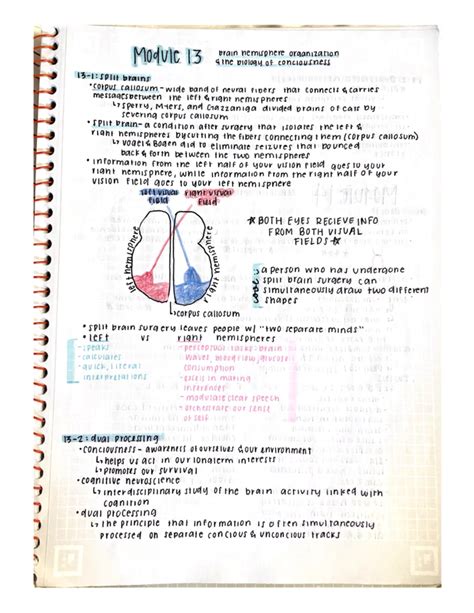 Module 13 brain hemisphere organization
& the biology of conciousness
13-1: split brains
• corpus callosum - wide band of neural fibers that connects & carries
messages between the left & right hemispheres
↳ sperry, Myers, and Gazzaniga divided brains of cats by
severing corpus callosum
• split brain - a condition after surgery that isolates the left &
right hemispheres by cutting the fibers connecting them (corpus callosum)
↳ Vogel & Bogen did to eliminate seizures that bounced
back & forth between the two hemispheres
• information from the left half of your vision field goes to your
right hemisphere, while information from the right half of your
vision field goes to your left hemisphere
left visual field
right visual field
left hemisphere
right hemisphere
↳ corpus callosum
★ BOTH EYES RECIEVE INFO
FROM BOTH VISUAL
FIELDS ★
a person who has undergone
split brain surgery can
simultaneously draw two different
shapes
• split brain surgery leaves people w/ "two separate minds"
• left vs right hemispheres
- speaks
- calculates
- quick, literal
interpretations
- perceptual tasks: brain
waves, bloodflow, glucose
consumption
- excels in making
inferences
- modulate clear speech
- orchestrate our sense
of self
13-2: dual processing
• conciousness - awareness of ourselves & our environment
↳ helps us act in our longterm interests
↳ promotes our survival
• cognitive neuroscience
↳ interdisciplinary study of the brain activity linked with
cognition
• dual processing
↳ the principle that information is often simultaneously
processed on separate concious & unconcious tracks